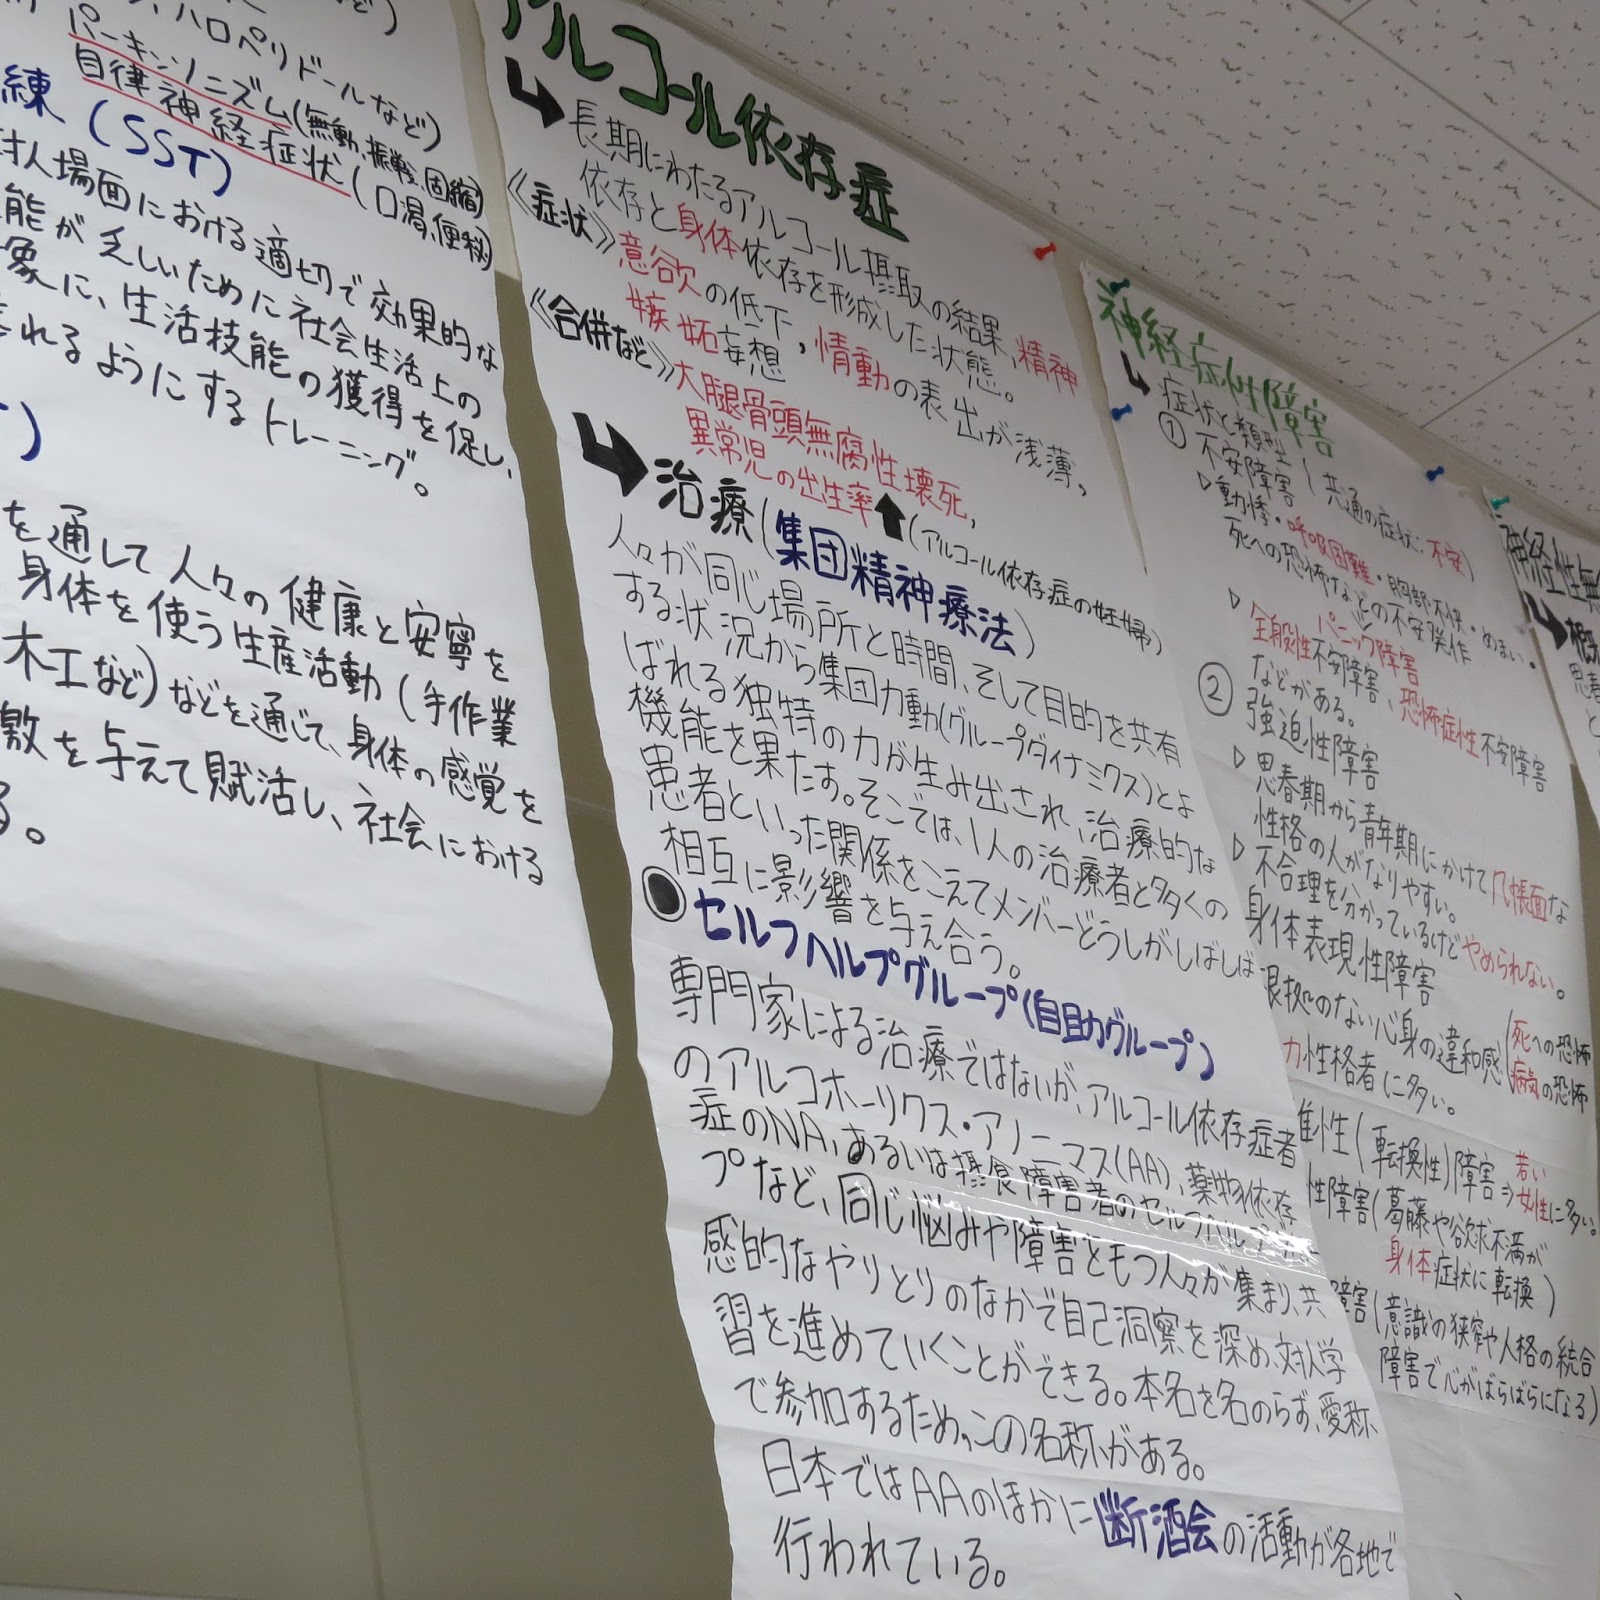 ハロペリドールなど)
パーキンソニズム(無動、振戦、固縮)
自律神経症状(口渇、便秘)
練(SST)
対人場面における適切で効果的な
能が乏しいために社会生活上の
象に、生活技能の獲得を促し、
れるようにするトレーニング。
を通して人々の健康と安寧を
身体を使う生産活動(手作業
木工など)などを通じて、身体の感覚を
激を与えて賦活し、社会における
る。
アルコール依存症
長期にわたるアルコール摂取の結果、精神
依存と身体依存を形成した状態。
《症状》意欲の低下,情動の表出が浅薄,
嫉妬妄想
《合併など》大腿骨頭無腐性壊死,
異常児の出生率↑(アルコール依存症の妊婦)
治療(集団精神療法)
人々が同じ場所と時間、そして目的を共有
する状況から集団力動(グループダイナミクス)とよ
ばれる独特の力が生み出され、治療的な
機能を果たす。そこでは、1人の治療者と多くの
患者といった関係をこえてメンバーどうしがしばしば
相互に影響を与え合う。
●セルフヘルプグループ(自助グループ)
専門家による治療ではないが、アルコール依存症者
のアルコホーリクス・アノニマス(AA)、薬物依存
症のNA、あるいは摂食障害者のセルフヘルプグルー
プなど、同じ悩みや障害ともつ人々が集まり、共
感的なやりとりのなかで自己洞察を深め、対人学
習を進めていくことができる。本名を名のらず、愛称
で参加するため、この名称がある。
日本ではAAのほかに断酒会の活動が各地で
行われている。
神経症性障害
症状と類型
① 不安障害(共通の症状:不安)
▷動悸・呼吸困難・胸部不快・めまい・
死への恐怖などの不安発作
パニック障害
▷全般性不安障害、恐怖症性不安障害
などがある。
② 強迫性障害
▷思春期から青年期にかけて几帳面な
性格の人がなりやすい。
▷不合理を分かっているけどやめられない。
身体表現性障害
根拠のない心身の違和感(死への恐怖
病気の恐怖
力性格者に多い。
性(転換性)障害⇒若い
女性に多い。
性障害(葛藤や欲求不満が
身体症状に転換)
障害(意識の狭窄や人格の統合
障害で心がばらばらになる)
神経性無
概
思春
と